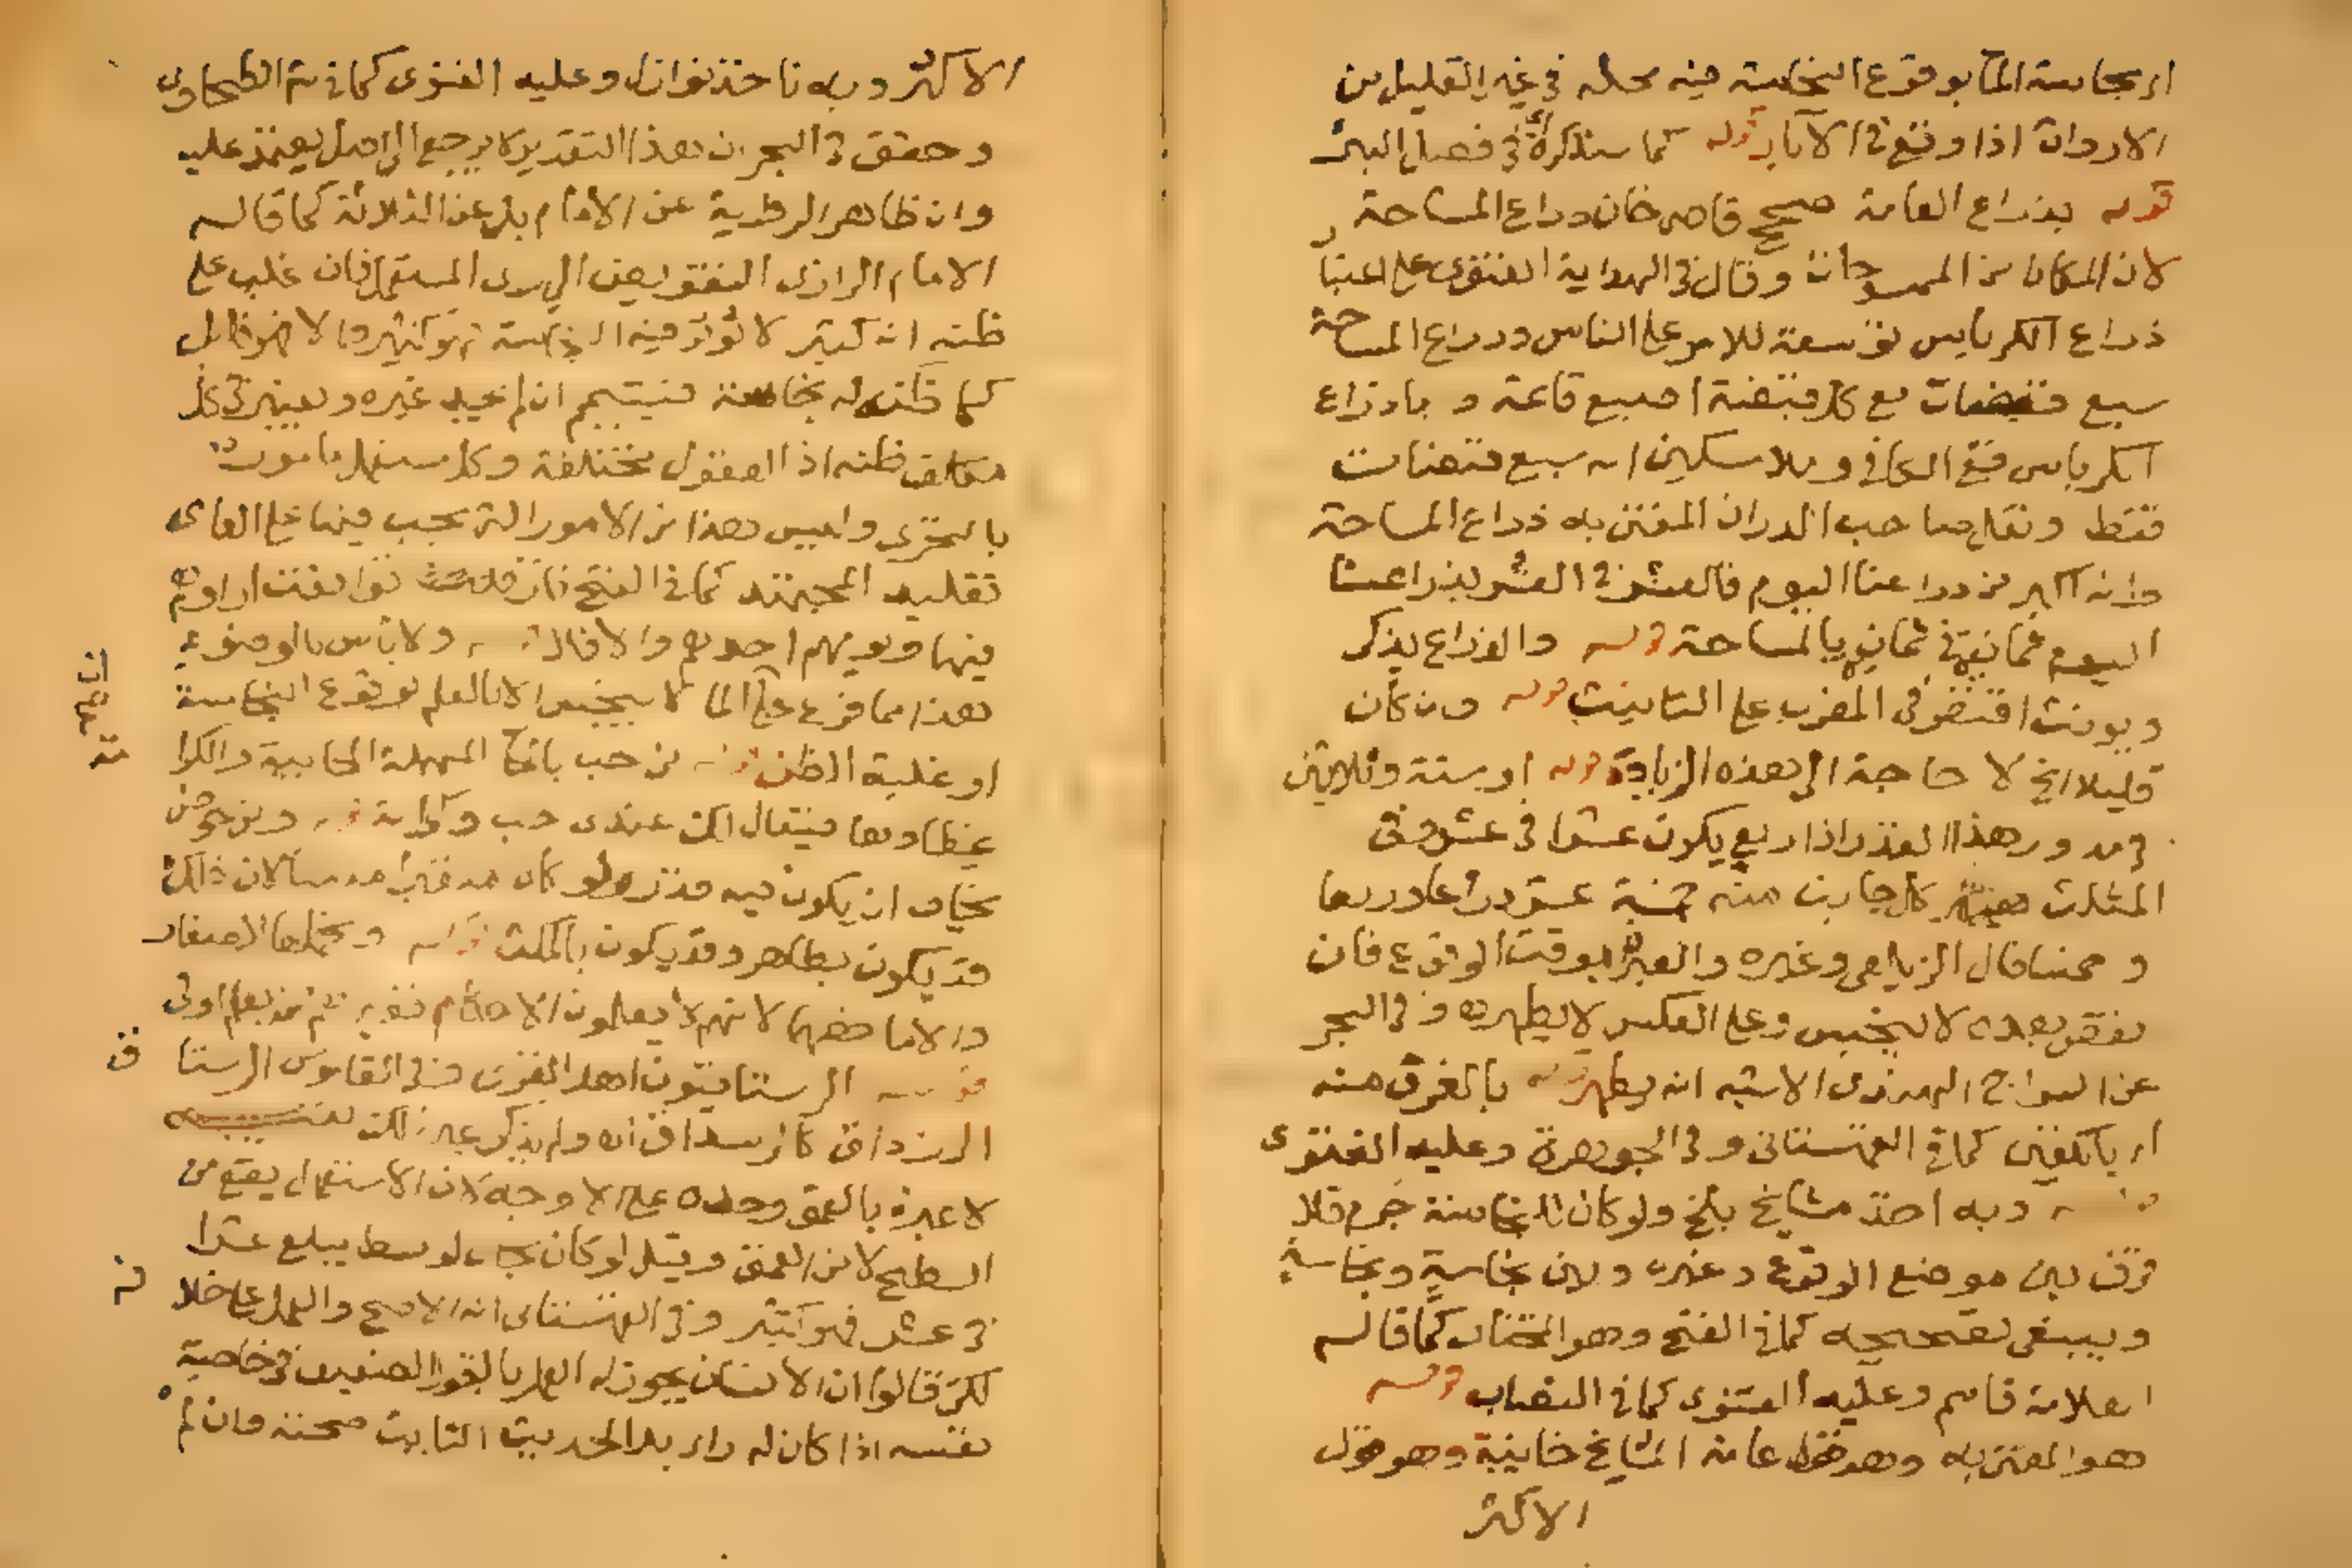 اي نجاسة الماء بوقوع النجاسة فيه محله في غير القليل من
الارواث اذا وقع في الآبار قوله كما سنذكره اي في فصل البئر
قوله بذراع العامة صحح قاضي خان ذراع المساحة
لان المكان من الممسوحات وقال في الهداية الفتوى على اعتبار
ذراع الكرباس توسعة للامر على الناس وذراع المساحة
سبع قبضات مع كل قبضة اصبع قائمة و ذراع
الكرباس ففي الكافي ومنلا مسكين انه سبع قبضات
فقط ونقل صاحب الدر ان المفتى به ذراع المساحة
وانه اكبر من ذراعنا اليوم فالعشر في العشر بذراعنا
اليوم ثمانية في ثمانية بالمساحة قوله والذراع يذكر
ويونث اقتصر في المغرب على التانيث قوله وان كان
قليلا الخ لا حاجة الى هذه الزيادة قوله او ستة وثلاثين
في مدور هذا القدر اذا ربع يكون عشرا في عشر وفي
المثلث كل جانب منه خمسة عشر ذراعا وربعا
وخمسا قال الزيلعي وغيره والعبرة بوقت الوقوع فان
نقص بعده لا ينجس وعلى العكس لا يطهر ه و في البحر
عن السراج الهندي الاشبه انه يطهر قوله بالغرف منه
اي بالكفين كما في القهستاني وفي الجوهرة وعليه الفتوى
قوله وبه اخذ مشايخ بلخ ولو كان للنجاسة جرم فلا
فرق بين موضع الوقوع وغيره وبين نجاسة ونجاسة
وينبغي تصحيحه كما في الفتح وهو المختار كما قاله
العلامة قاسم وعليه الفتوى كما في النصاب قوله
هو المفتى به وهو قول عامة المشايخ خانية وهو قول
الاكثر
الاكثر وبه ناخذ نوازل وعليه الفتوى كما في شرح الطحاوي
وحقق في البحر ان هذا التقدير لا يرجع الى اصل يعتمد عليه
وان ظاهر الرواية عن الامام بل عن الثلاثة كما قاله
الامام الرازي التفويض الى راي المستعمل فان غلب على
ظنه انه كثير لا توثر فيه النجاسة فهو كثير والا فهو قليل
كما ظنه له نجاسة فيتيمم ان لم يجد غيره ويعتبر في كل
مكلف ظنه اذ العقول مختلفة وكل مستعمل مامور
بالتحري وليس هذا من الامور التي يجب فيها على العامي
تقليد المجتهد كما في الفتح فان توافقت اراوهم
فيها ويومهم احدهم والا فلا قوله ولا باس بالوضوء
هذا مما فرع على الماء لا ينجس الا بالعلم بوقوع النجاسة
او غلبة الظن قوله من حب بالحاء المهملة الخابية والكرامة
غطاوها فيقال لك عندي حب وكرامة قوله ويتوضئ من
يخاف ان يكون فيه قذر ولو كان متغيرا منتنا لان ذلك
قد يكون بطاهر وقد يكون بالمكث قوله ويحملها الصغار
والاما خصهما لانهم لا يعلمون الاحكام فغيرهم ممن يعلم اولى
قوله الرستاقيون اهل القرى ففي القاموس الرستا
ق
الرزداق كالرسداق اه ولم يذكر غير ذلك
لا عبرة بالعمق وحده على الاوجه لان الاستعمال يقع من
السطح لا من العمق وقيل لو كان بحال لو بسط يبلغ عشرا
في عشر فهو كثير وفي القهستاني انه الاصح والعمل على خلا
فه
لكن قالوا ان الانسان يجوز له العمل بالقول الضعيف في خاصة
نفسه اذا كان له راي بل الحديث الثابت صحته وان لم